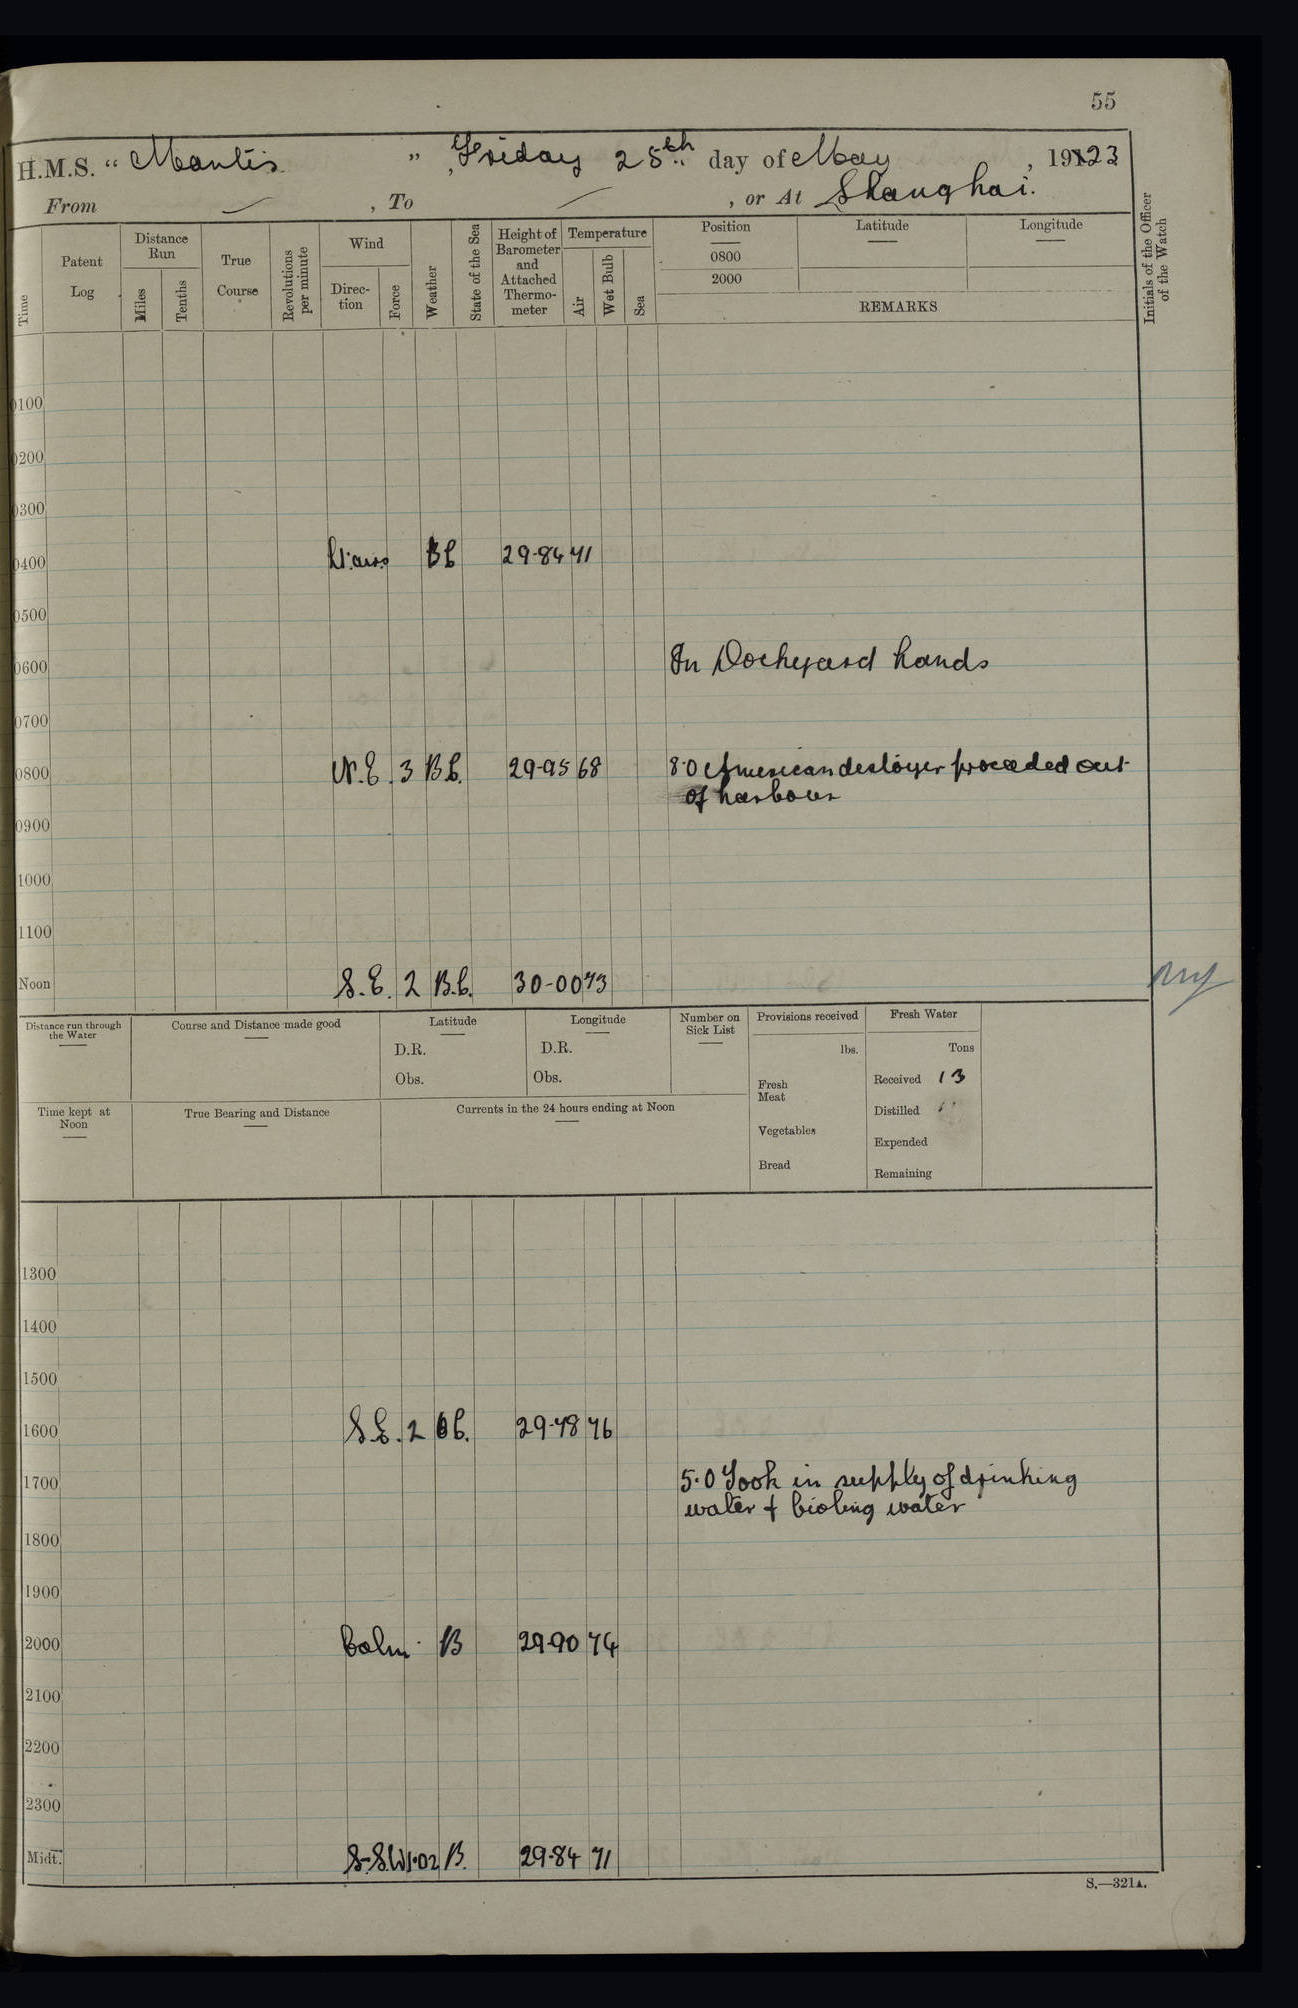 55
H.M.S. “ Mantis ” , Friday 25th day of May , 1923
From , To , or At Shanghai.
Time
Patent Log
Distance Run
Miles
Tenths
True Course
Revolutions per minute
Wind
Direction
Force
Weather
State of the Sea
Height of Barometer and Attached Thermometer
Temperature
Air
Wet Bulb
Sea
Position
0800
2000
Latitude
Longitude
REMARKS
Initials of the Officer of the Watch
0100
0200
0300
0400 Lt. airs BC 29·84 71
0500
0600 In Dockyard hands
0700
0800 N.E. 3 B.C. 29-95 68 8·0 American destoyer proceeded out
of harbour
0900
1000
1100
Noon S.E. 2 B.C. 30-00 73
Distance run through the Water
Course and Distance made good
Latitude
D.R.
Obs.
Longitude
D.R.
Obs.
Number on Sick List
Provisions received
lbs.
Fresh Meat
Vegetables
Bread
Fresh Water
Tons
Received 13
Distilled
Expended
Remaining
Time kept at Noon
True Bearing and Distance
Currents in the 24 hours ending at Noon
1300
1400
1500
1600 S.E. 2 BC. 29-78 76
1700 5·0 Took in supply of drinking
water & bioling water
1800
1900
2000 Calm B 29-90 74
2100
2200
2300
Midt. S-S.W 1·02 B. 29-84 71
S.—321A.